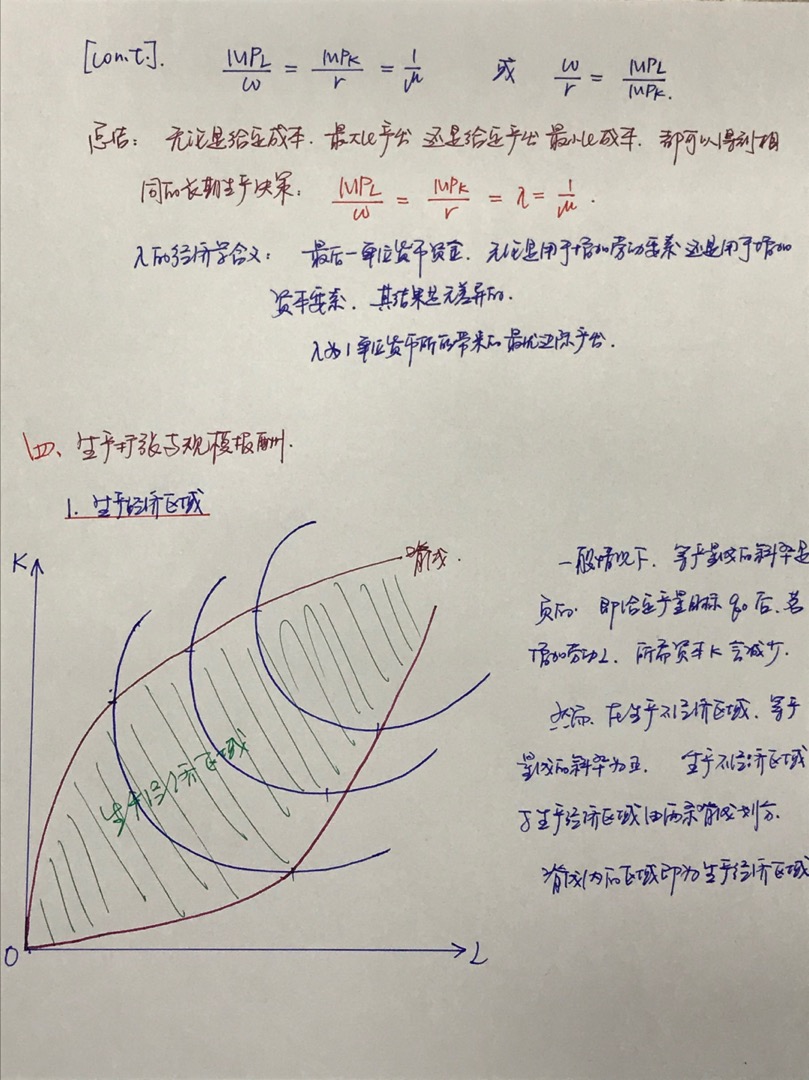 [cont.]. MP_L/ω = MP_K/r = 1/μ 或 ω/r = MP_L/MP_K.
总结: 无论是给定成本.最大化产出 还是给定产出 最小化成本. 都可以得到相
同的长期生产决策: MP_L/ω = MP_K/r = λ = 1/μ.
λ的经济学含义: 最后一单位货币资金.无论是用于增加劳动要素还是用于增加
资本要素.其结果是无差异的.
λ为1单位货币所能带来的最优边际产出.
四、生产扩张与规模报酬.
1. 生产经济区域
K
脊线.
生产经济区域
O
L
一般情况下.等产量线的斜率是
负的. 即给定产量目标 q₀ 后.若
增加劳动L.所需资本K会减少.
然而.在生产不经济区域.等产
量线的斜率为正. 生产不经济区域
与生产经济区域由两条脊线划分.
脊线内的区域即为生产经济区域